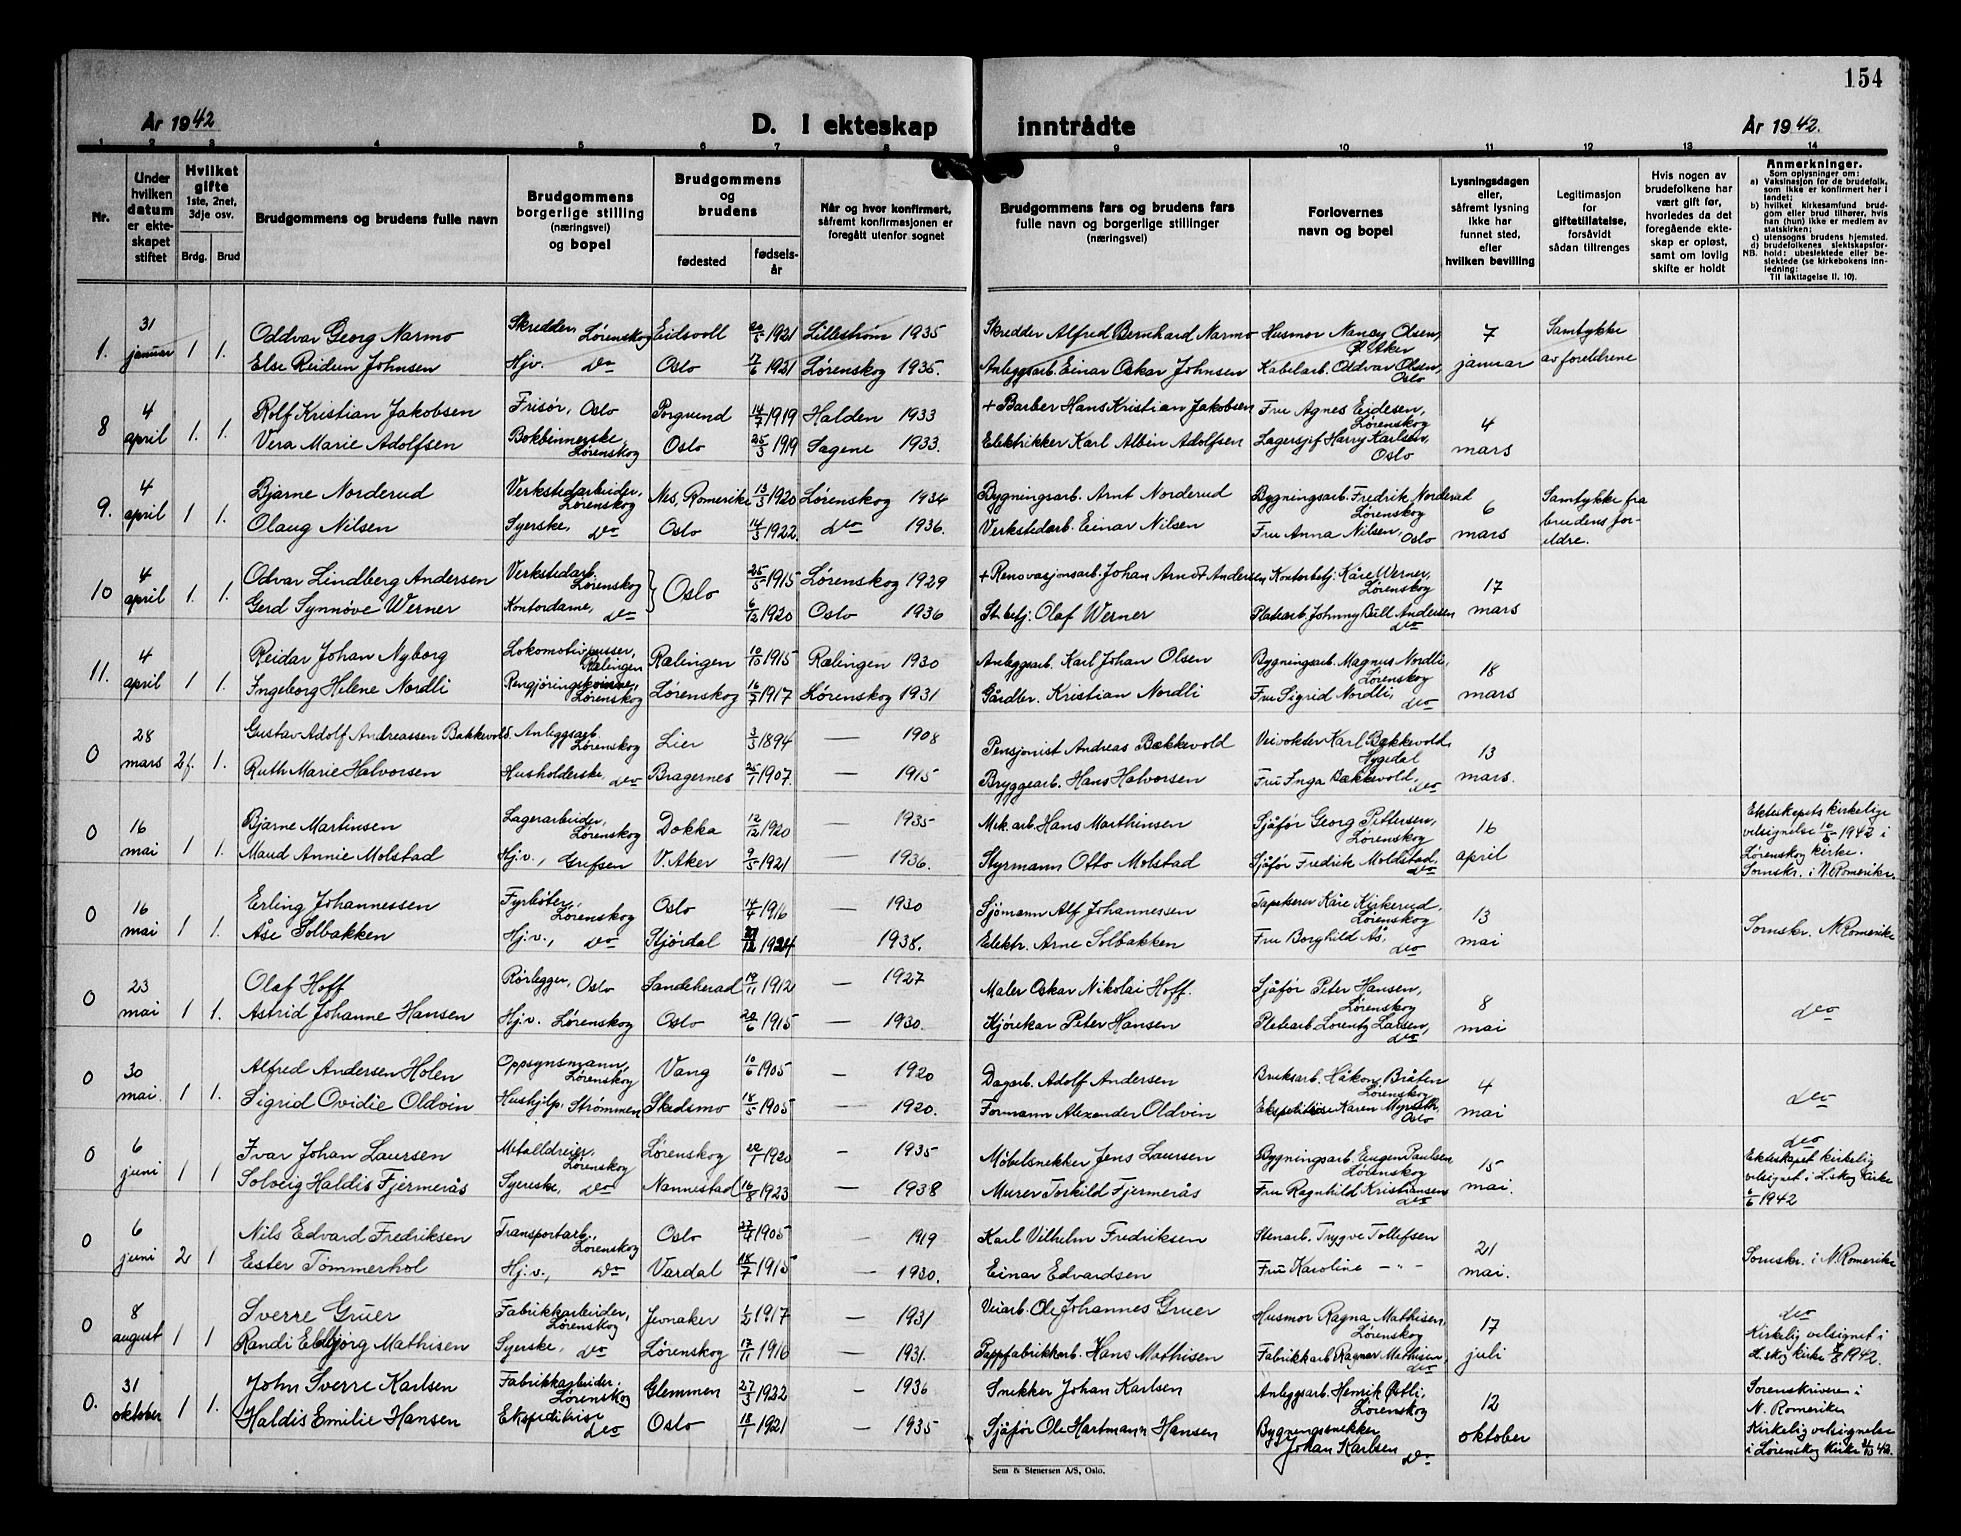 154
År 1942
D. I ekteskap inntrådte
År 1942.
1 2 3 4 5 6 7 8 9 10 11 12 13 14
Nr.
Under hvilken datum er ekteskapet stiftet
Hvilket gifte 1ste, 2net, 3dje osv.
Brdg. Brud
Brudgommens og brudens fulle navn
Brudgommens borgerlige stilling (næringsvei) og bopel
Brudgommens og brudens
fødested
fødselsår
Når og hvor konfirmert, såfremt konfirmasjonen er foregått utenfor sognet
Brudgommens fars og brudens fars fulle navn og borgerlige stillinger (næringsvei)
Forlovernes navn og bopel
Lysningsdagen eller, såfremt lysning ikke har funnet sted, efter hvilken bevilling
Legitimasjon for giftetillatelse, forsåvidt sådan tiltrenges
Hvis nogen av brudefolkene har vært gift før, hvorledes da det foregående ekteskap er opløst, samt om lovlig skifte er holdt
Anmerkninger.
Som oplysninger om:
a) Vaksinasjon for de brudefolk, som ikke er konfirmert her i landet;
b) hvilket kirkesamfund brudgom eller brud tilhører, hvis han (hun) ikke er medlem av statskirken;
c) utensogns brudens hjemsted.
d) brudefolkenes slektskapsforhold: ubeslektede eller beslektede (se kirkebokens innledning:
NB. Til iakttagelse II, 10).
1. 31 januar 1 1. Oddvar Georg Narmo Skredder, Lørenskog Eidsvoll 20/5 1921 Lillestrøm 1935 Skredder Alfred Bernhard Narmo Husmor Nancy Olsen, Ø. Aker 7 januar Samtykke av foreldrene
Else Reidun Johnsen Hjv. do Oslo 17/6 1921 Lørenskog 1935. Anleggsarb. Einar Oskar Johnsen Kabelarb. Oddvar Olsen, Oslo
8 4 april 1. 1. Rolf Kristian Jakobsen Frisør, Oslo Porgrund 14/7 1919 Halden 1933 + Barber Hans Kristian Jakobsen Fru Agnes Eidesen, Lørenskog 4 mars
Vera Marie Adolfsen Bokbinnerske, Lørenskog Oslo 25/3 1919 Sagene 1933. Elektrikker Karl Albin Adolfsen Lagersjef Harry Karlsen, Oslo
9. 4 april 1 1. Bjarne Norderud Verkstedarbeider, Lørenskog Nes, Romerike 13/3 1920 Lørenskog 1934 Bygningsarb. Arnt Norderud Bygningsarb. Fredrik Norderud Lørenskog 6 mars Samtykke fra brudens foreldre.
Olaug Nilsen Syerske, do Oslo 14/3 1922. do 1936. Verkstedarb. Einar Nilsen Fru Anna Nilsen, Oslo
10 4 april 1. 1. Odvar Lindberg Andersen Verkstedarb. Lørenskog } Oslo 25/5 1915 Lørenskog 1929 + Renovasjonsarb. Johan Arnt Andersen Kontorbetj. Kåre Werner, Lørenskog 17 mars
Gerd Synnøve Werner Kontordame, do 6/12 1920 Oslo 1936 St. betj: Olaf Werner Platearb. Johnny Bull Andersen do
11. 4 april 1 1. Reidar Johan Nyborg Lokomotivpusser, Rælingen Rælingen 10/10 1915 Rælingen 1930 Anleggsarb. Karl Johan Olsen Bygningsarb. Magnus Nordli, Lørenskog 18 mars
Ingeborg Helene Nordli Rengjøringskvinne, Lørenskog Lørenskog 16/7 1917 Lørenskog 1931 Gårdbr. Kristian Nordli Fru Sigrid Nordli, do
0 28 mars 2f. 1. Gustav Adolf Andreassen Bakkevold. Anleggsarb. Lørenskog Lier 3/3 1894 — 1908 Pensjonist Andreas Bækkevold Veivokter Karl Bækkevold, 13 mars.
Ruth Marie Halvorsen Husholderske, do Bragernes 25/1 1907. — 1915 Bryggearb. Hans Halvorsen Fru Inga Bækkevold, do
0 16 mai 1 1. Bjarne Martinsen Lagerarbeider, Lørenskog Dokka 12/12 1920 — 1935 Mek. arb. Hans Marthinsen Sjåfør Georg Pettersen, Lørenskog 16 april Ekteskapets kirkelige velsignelse 10/6 1942 i Lørenskog kirke. Sornskr. i N. Romerike.
Maud Annie Molstad Hj.v., Grefsen V. Aker 9/5 1921 — 1936. Styrmann Otto Molstad Sjåfør Fredrik Moldstad, do
0 16 mai 1 1. Erling Johannessen Fyrbøter, Lørenskog Oslo 14/4 1916 — 1930 Sjømann Alf Johannessen Tapetserer Kåre Kirkerud, Lørenskog 13 mai Sornskr. N. Romerike
Åse Solbakken Hj.v., do Stjørdal 1924 — 1938. Elektr. Arne Solbakken Fru Borghild Ås, do
0 23 mai 1 1. Olaf Hoff Rørlegger, Oslo Sandeherad 19/11 1912 — 1927 Maler Oskar Nikolai Hoff. Sjåfør Peter Hansen, Lørenskog 8 mai do
Astrid Johanne Hansen Hj.v. Lørenskog Oslo 20/6 1915 — 1930. Kjørekar Peter Hansen Platearb. Lorentz Larsen, do
0 30 mai. 1 1. Alfred Andersen Holen Oppsynsmann, Lørenskog Vang 10/6 1905 — 1920 Dagarb. Adolf Andersen Bruksarb. Håkon Bråten Lørenskog 4 mai do
Sigrid Ovidie Oldvin Hushjelp, Strømmen Skedsmo 18/5 1905 — 1920. Formann Alexander Oldvin Ekspeditrise Karen Myrseth, Oslo
0 6 juni 1 1 Ivar Johan Laursen Metalldreier, Lørenskog Lørenskog 22/1 1920 — 1935 Møbelsnekker Jens Laursen Bygningsarb. Eugen Paulsen Lørenskog 15 mai. do Ekteskapet kirkelig velsignet i L.skog kirke 6/6 1942
Solveig Haldis Fjermerås Syerske, do Nannestad 16/8 1923 — 1938 Murer Torkild Fjermerås Fru Ragnhild Kristiansen do
0 6 juni 2 1 Nils Edvard Fredriksen Transportarb., Lørenskog Oslo 27/4 1905 — 1919 Karl Vilhelm Fredriksen Stenarb. Trygve Tollefsen 21 mai. Sornskr. i N. Romerike
Ester Tømmerhol Hj.v., do Vardal 18/7 1915 — 1930. Einar Edvardsen Fru Karoline — " —
0 8 august 1 1 Sverre Gruer Fabrikkarbeider, Lørenskog Jevnaker 1/2 1917 — 1931 Veiarb. Ole Johannes Gruer Husmor Ragna Mathisen, Lørenskog 17 juli do Kirkelig velsignet i L.skog kirke 8/8 1942.
Randi Elbjørg Mathisen Syerske, do Lørenskog 17/11 1916 — 1931. Pappfabrikkarb. Hans Mathisen Fabrikkarb Ragnar Mathisen, do
0. 31 oktober 1 1. John Sverre Karlsen Fabrikkarbeider, Lørenskog Glemmen 27/3 1922 — 1936 Snikker Johan Karlsen Anleggsarb. Henrik Østli, Lørenskog 12 oktober Sorenskriveren i N. Romerike Kirkelig velsignelse i Lørenskog Kirke 31/10 42.
Haldis Emilie Hansen Ekspeditrise do Oslo 18/1 1921 — 1935 Sjåfør Ole Hartmann Hansen Bygningssnekker Johan Karlsen do
Sem & Stenersen A/S, Oslo.